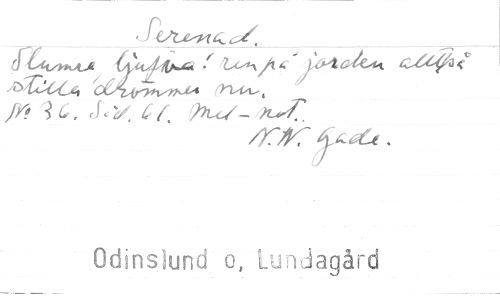 Serenad.
Slumra ljufva! ren på jorden allt så
stilla drömmer nu.
No 36. Sid. 61. Mel-not.
N.W. Gade.
Odinslund o, Lundagård